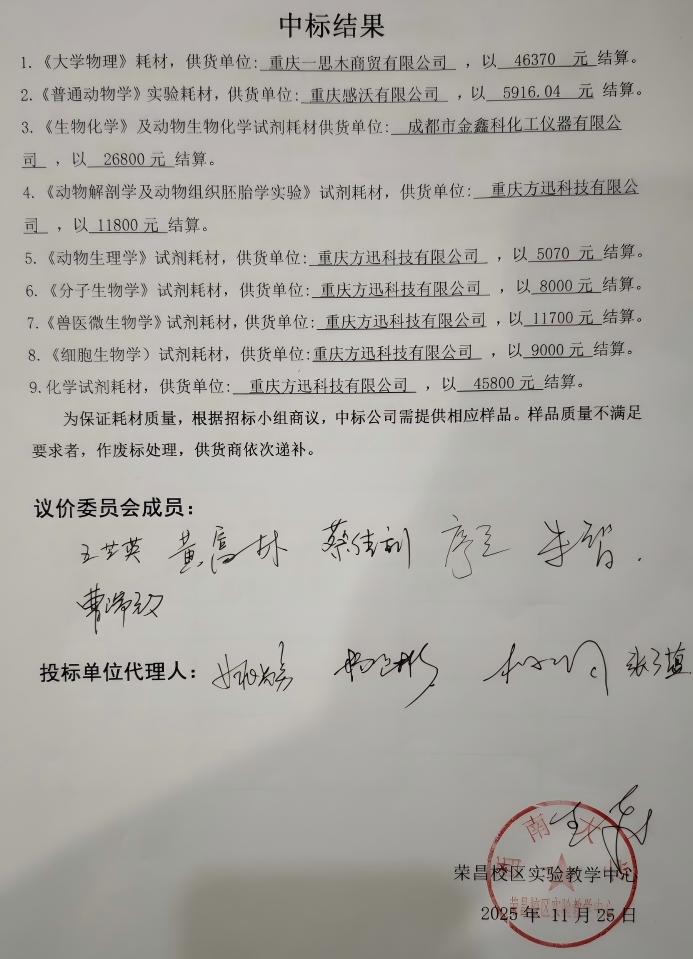 中标结果
1.《大学物理》耗材，供货单位：重庆一思木商贸有限公司，以 46370 元结算。
2.《普通动物学》实验耗材，供货单位：重庆感沃有限公司，以 5916.04 元 结算。
3.《生物化学》及动物生物化学试剂耗材供货单位：成都市金鑫科化工仪器有限公
司，以 26800 元 结算。
4.《动物解剖学及动物组织胚胎学实验》试剂耗材，供货单位：重庆方迅科技有限公
司，以 11800 元 结算。
5.《动物生理学》试剂耗材，供货单位：重庆方迅科技有限公司，以 5070 元 结算。
6.《分子生物学》试剂耗材，供货单位：重庆方迅科技有限公司，以 8000 元 结算。
7.《兽医微生物学》试剂耗材，供货单位：重庆方迅科技有限公司，以 11700 元 结算。
8.《细胞生物学）试剂耗材，供货单位：重庆方迅科技有限公司，以 9000 元 结算。
9.化学试剂耗材，供货单位：重庆方迅科技有限公司，以 45800 元 结算。
为保证耗材质量，根据招标小组商议，中标公司需提供相应样品。样品质量不满足
要求者，作废标处理，供货商依次递补。
议价委员会成员：
王芝英 黄富林 蔡佳利 朱智
投标单位代理人：
南大
荣昌校区实验教学中心
荣昌校区实验教学中心
2025 年 11 月 25 日